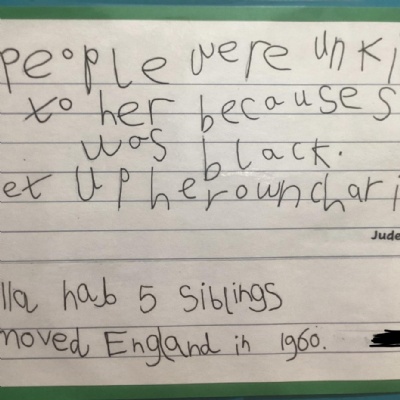 People were unki
to her because s
was black.
et up her own chari
Jude
lla hab 5 siblings
moved England in 1960.